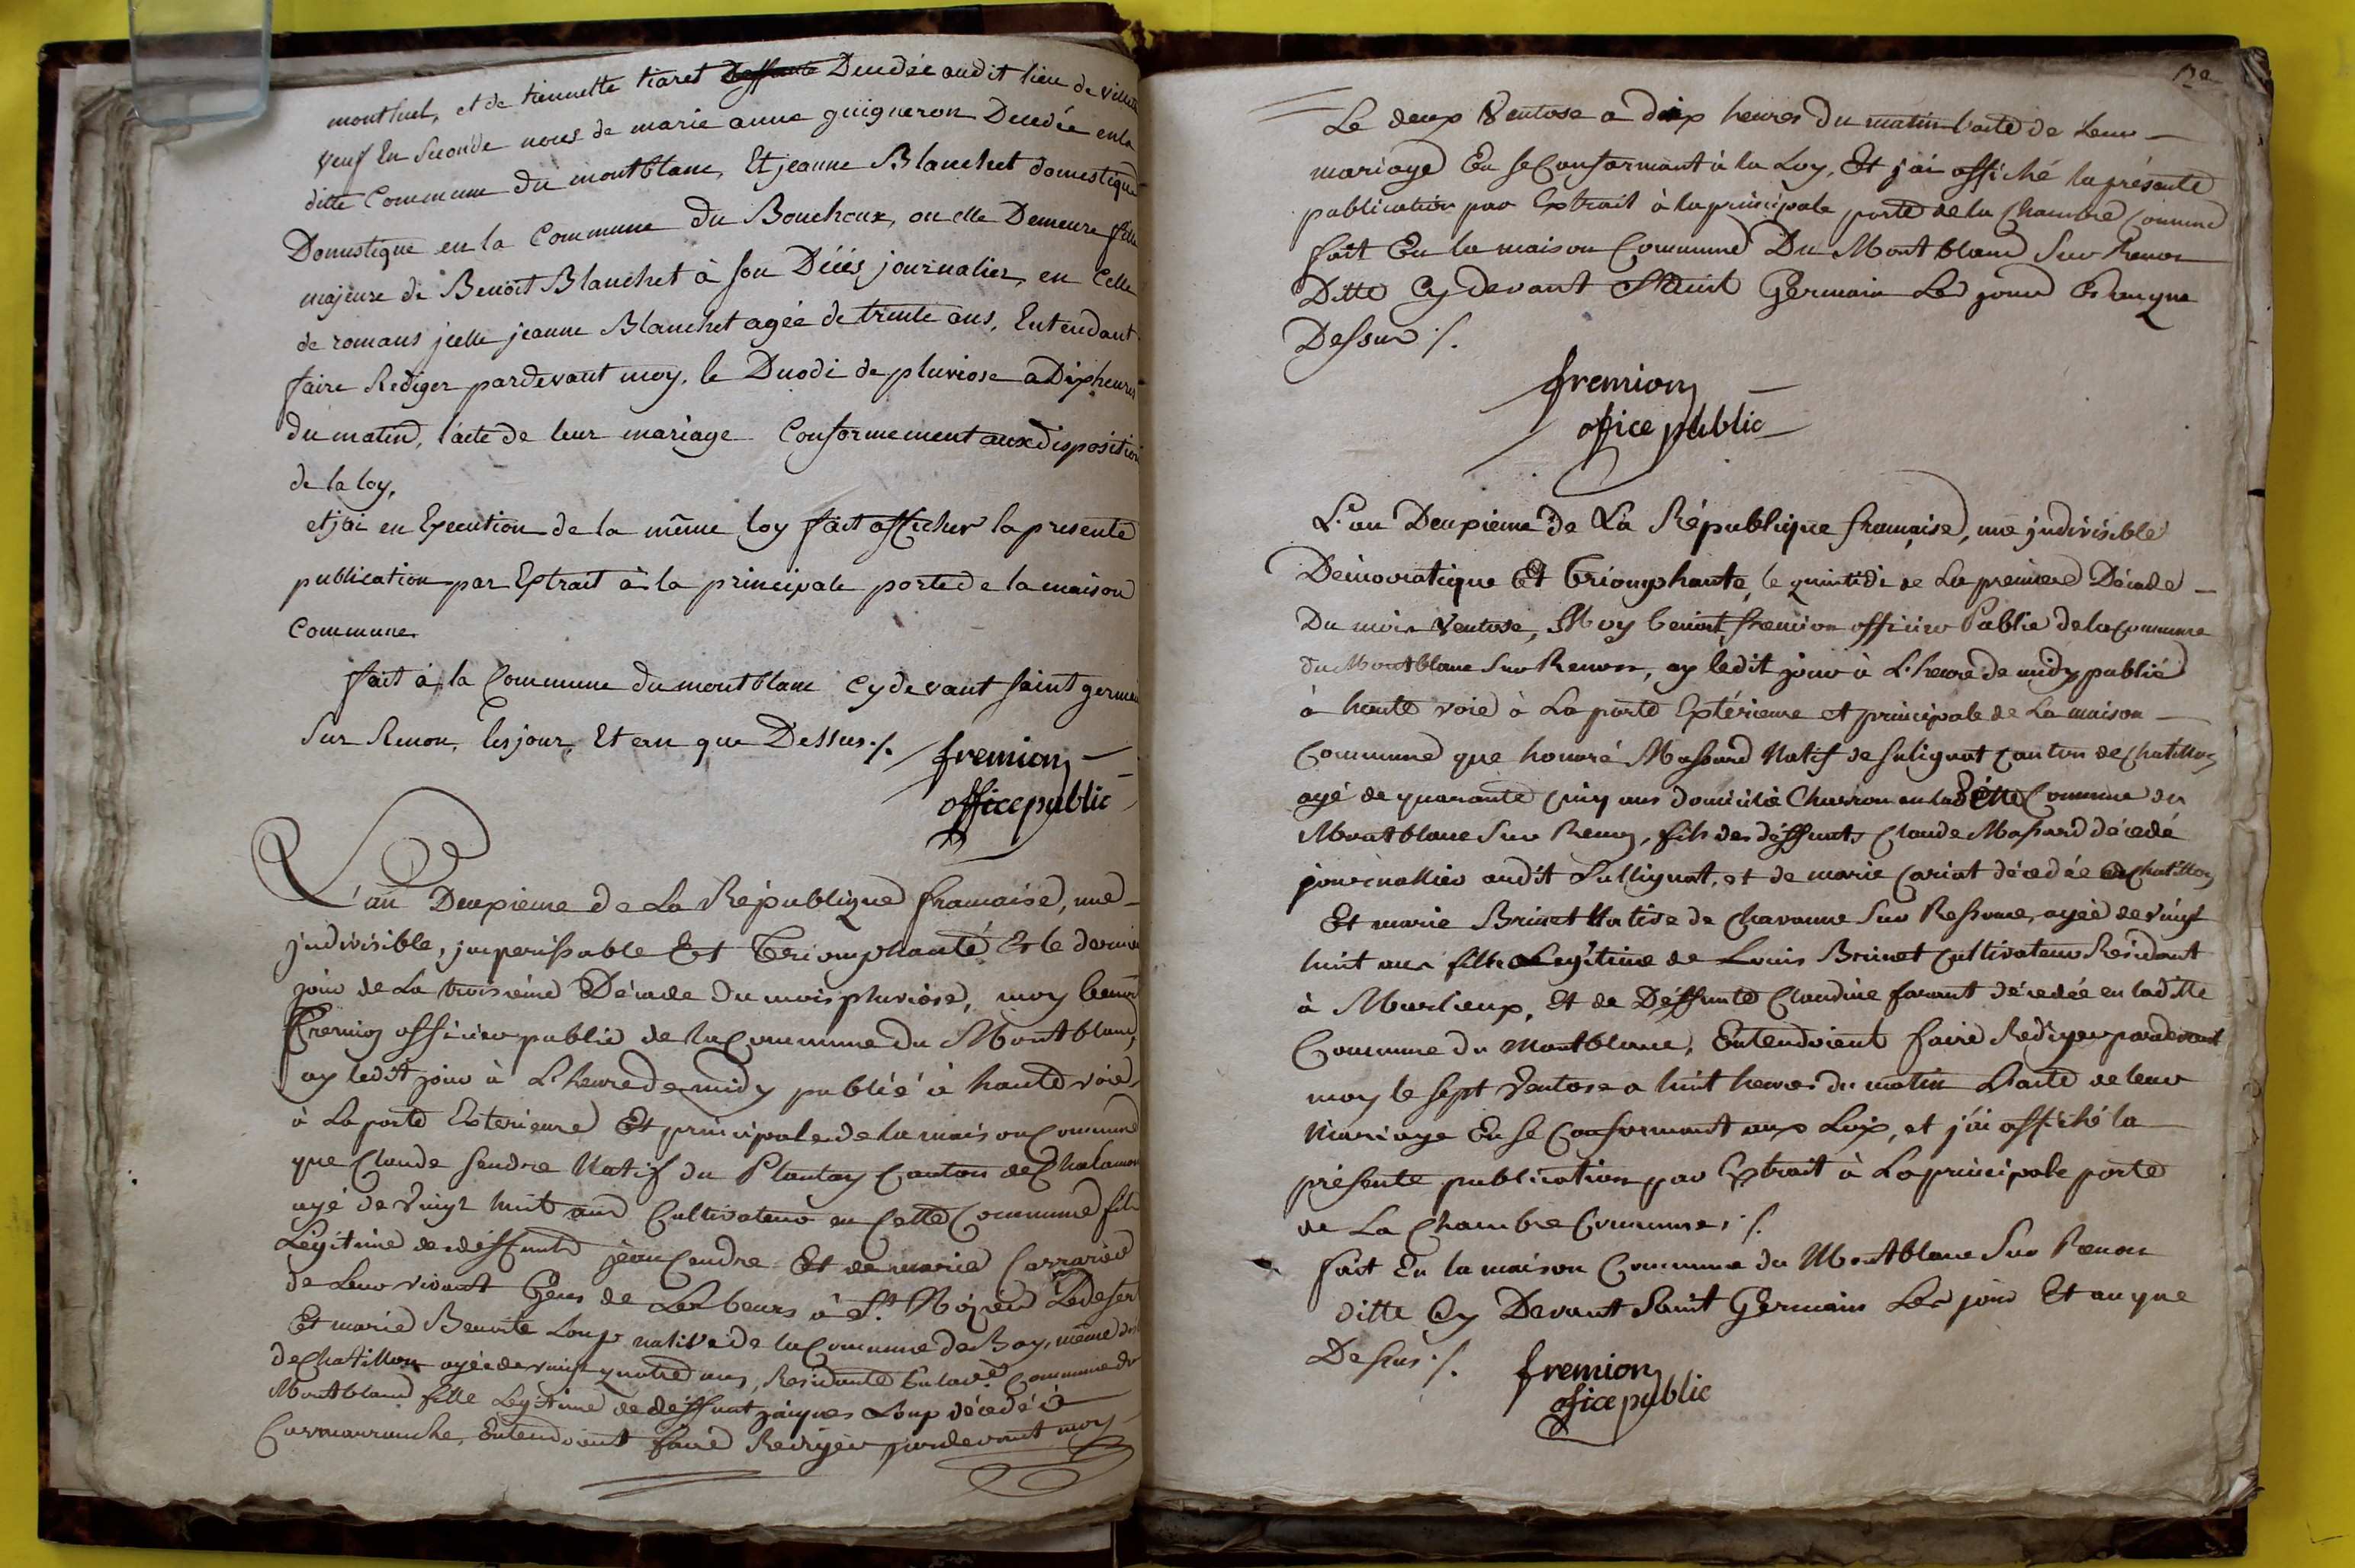 montluel, et de tiennette tiaret Deffunte Decedée audit lieu de villette
veuf En seconde noces de marie anne guigneron Decedée en la
ditte Commune du montblanc, Et jeanne Blanchet domestique
Domestique en la Commune du Bouchoux, ou elle Demeure fille
majeure de Benoit Blanchet à son Décés journalier, en Celle
de romans jcelle jeanne Blanchet agée de trente ans, Entendant
faire Rediger pardevant moy, le Duodi de pluviose a Dix heures
du matin, l'acte de leur mariage Conformement aux disposition
de la loy,
et j'ai en Execution de la même loy fait afficher la presente
publication par Extrait à la principale porte de la maison
Commune
fait à la Commune du montblanc cy devant saint germain
Sur Renon, les jour, Et an que Dessus ./.
fremion
office public
L'an Deuxieme de La République francaise, une
jndivisible, jmperissable Et Triomphante Et le dernier
jour de La troisieme Décade du mois pluviose, moy benoit
fremion officier public de la Commune du Montblanc,
ay ledit jour à L'heure de midy publié à haute voie
à La porte Exterieure Et principale de la maison Commune
que Claude Sendre Natif du Plantay Canton de Chalamon
agé de vingt huit ans Cultivateur en Cette Commune fils
Légitime des deffunts jean Cendre Et de marie Carrarie
de Leur vivant Gens de Labeurs à St. Nizier Ledesert
Et marie Benoite Loup native de la Commune de Bay, même
de Chatillon agée de vingt quatre ans, Residante En lad.e Commune du
Montblanc fille Legitime de deffunt jacques Loup décédé à
Cormarranche, Entendoient faire Rediger pardevant moy
12e
Le deux Ventose a dix heures du matin l'acte de Leur
mariage En se Conformant à la Loy, Et j'ai affiché la présente
publication par Extrait à la principale porte de la Chambre Commune
fait En la maison Commune Du Montblanc Sur Renon
Ditte Cy devant Saint Germain Les jour Et an que
Dessus ./.
fremion
office public
L'an Deuxieme de La République francaise, une jndivisible
Démocratique Et Triomphante, le quintidi de La premiere Décade
Du mois Ventose, Moy benoit fremion officier Public de la Commune
du Montblanc Sur Renon, ay ledit jour à L'heure de midy publié
à haute voie à La porte Extérieure et principale de La maison
Commune que honoré Massard Natif de Sulignat Canton de Chatillon
agé de quarante Cinq ans domicilié Charron en laditte Commune du
Montblanc Sur Renon, fils des déffunts Claude Massard décedé
journallier audit Sullignat, et de marie Cariat décedée à Chatillon
Et marie Brunet Native de Chavanne Sur Ressouze, agée de vingt
huit ans fille Legitime de Louis Brunet Cultivateur Residant
à Marlieux, Et de Déffunte Claudine farant décedée en laditte
Commune du Montblanc, Entendoient faire Rediger pardevant
moy le sept Ventose a huit heures du matin L'acte de leur
Mariage En se Conformant aux Loix, et j'ai affiché la
présente publication par Extrait à La principale porte
de La Chambre Commune ./.
fait En la maison Commune du Montblanc Sur Renon
ditte Cy Devant Saint Germain Les jour Et an que
Dessus ./.
fremion
office public